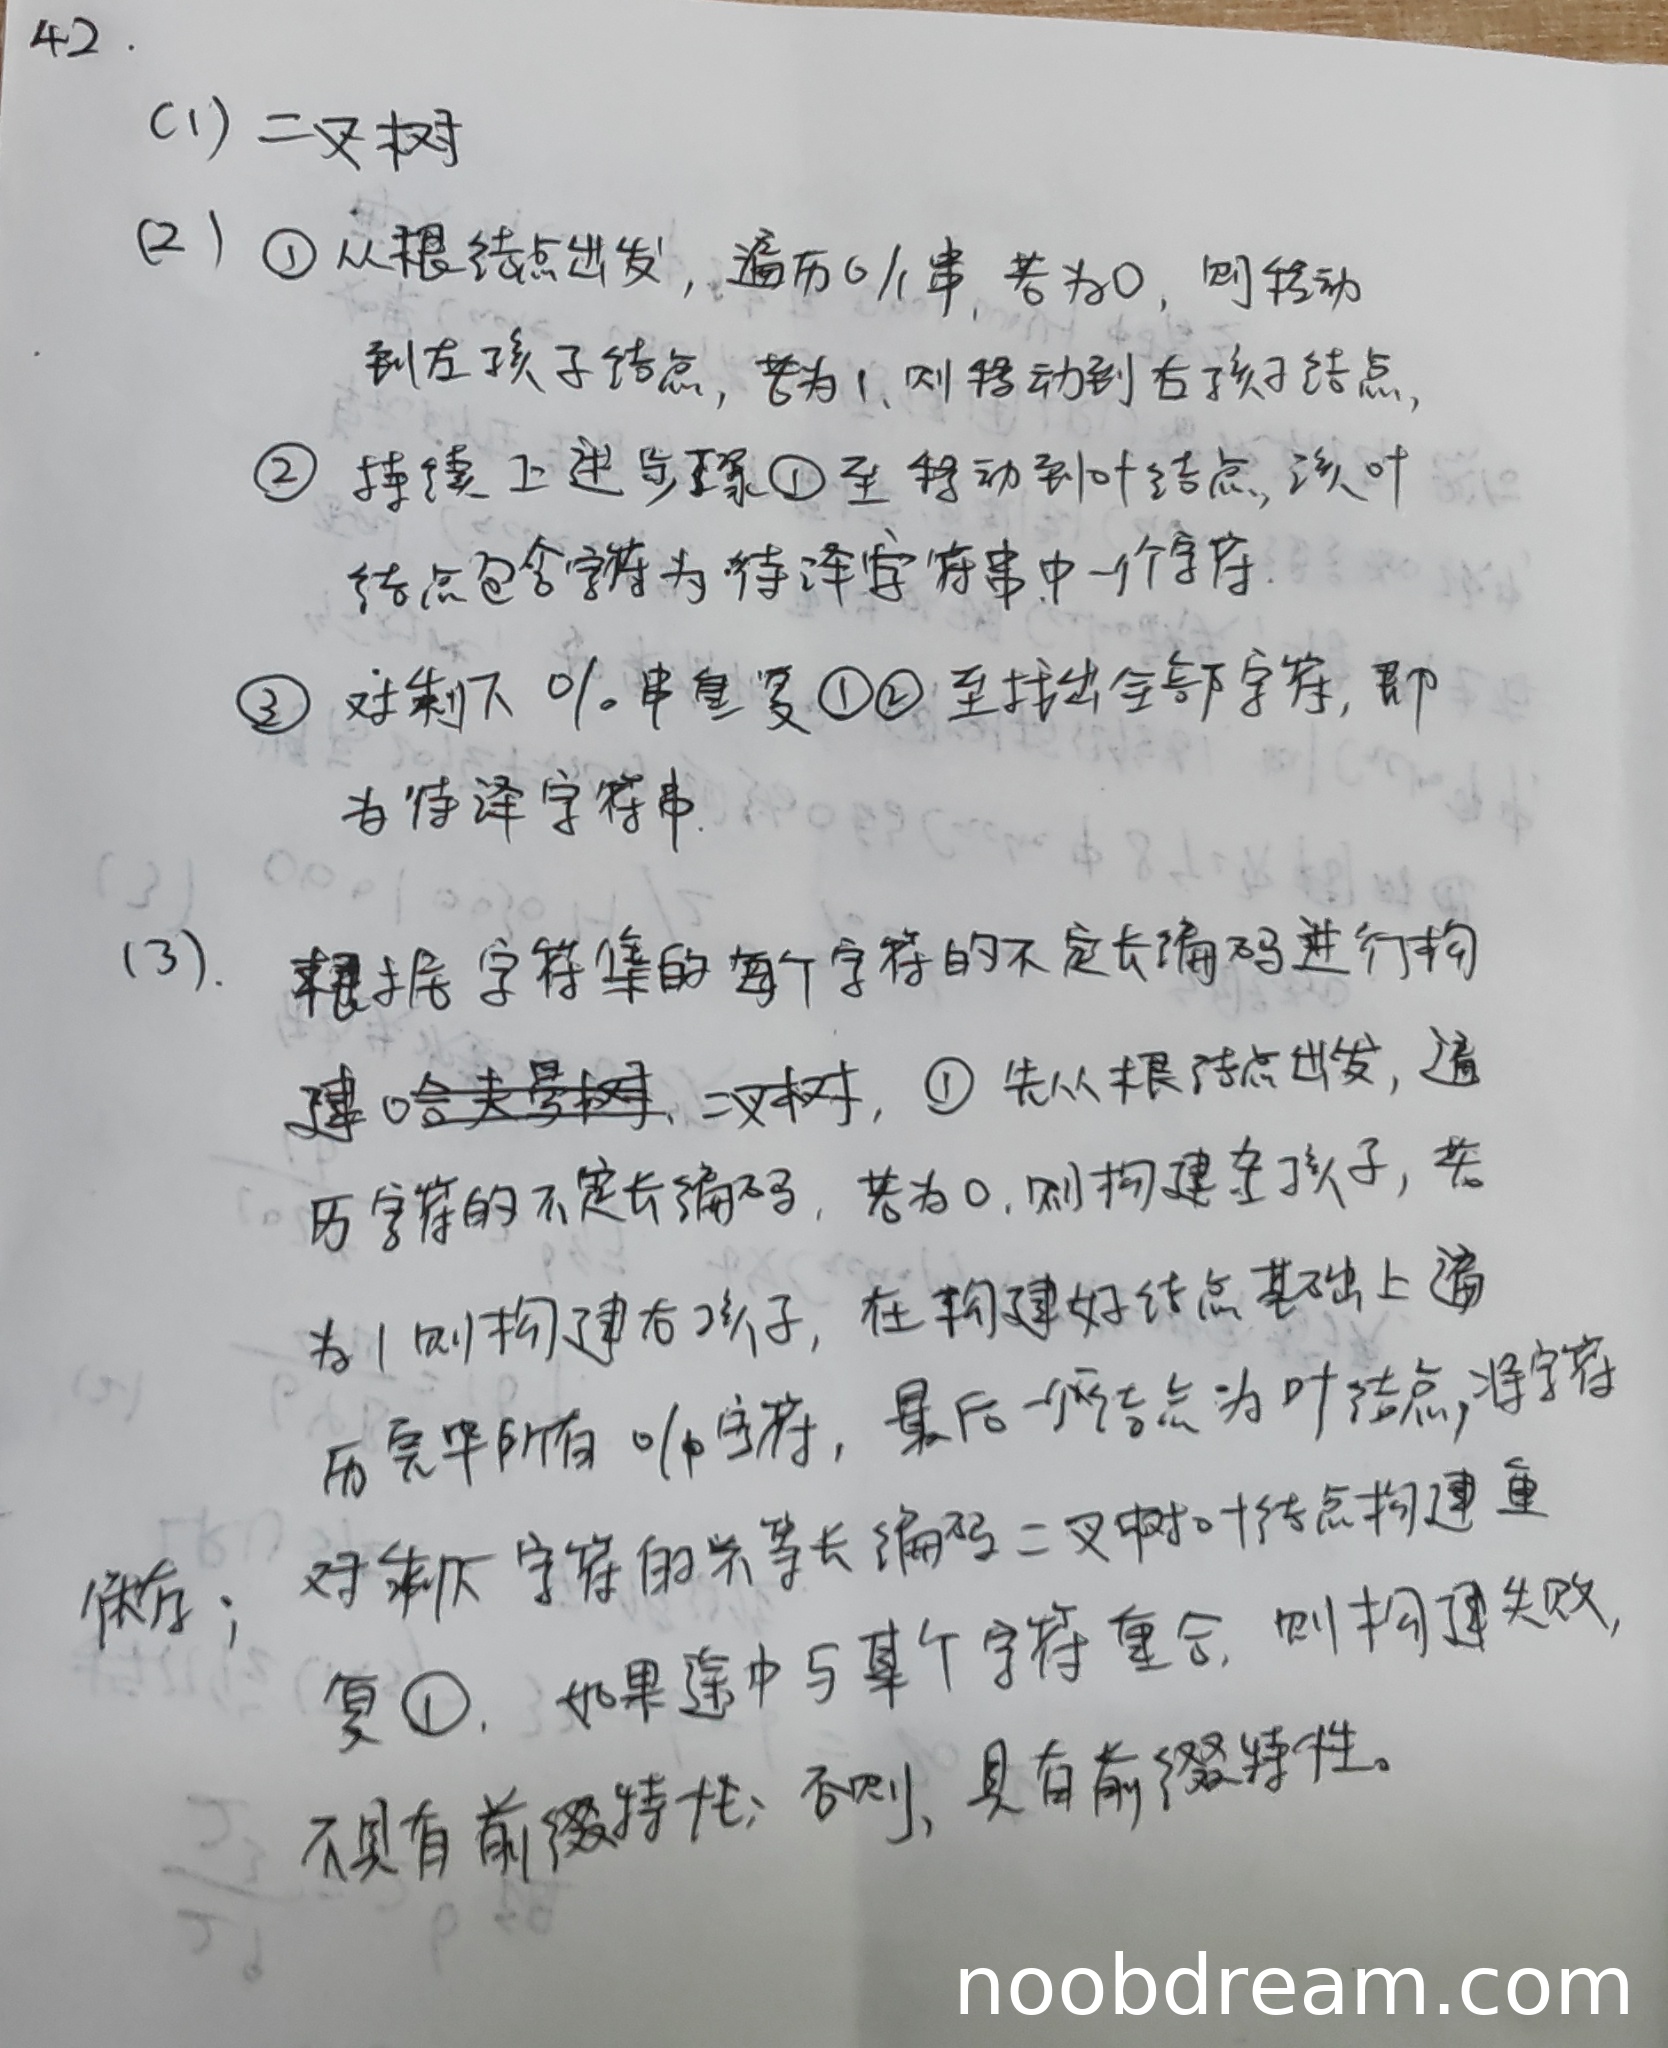 42.
(1) 二叉树
(2) ① 从根结点出发, 遍历0/1串, 若为0, 则移动
到左孩子结点, 若为1, 则移动到右孩子结点,
② 持续上述步骤①至移动到叶结点, 该叶
结点包含字符为待译字符串中一个字符.
③ 对剩下0/1串重复①②至找出全部字符, 即
为待译字符串.
(3). 根据字符集的每个字符的不定长编码进行构
建哈夫曼树、二叉树, ① 先从根结点出发, 遍
历字符的不定长编码, 若为0, 则构建左孩子, 若
为1则构建右孩子, 在构建好结点基础上遍
历完毕所有0/1字符, 最后一个结点为叶结点, 将字符
保存; 对剩下字符的不等长编码二叉树叶结点构建重
复①. 如果途中与某个字符重合, 则构建失败,
不具有前缀特性; 否则, 具有前缀特性。
noobdream.com